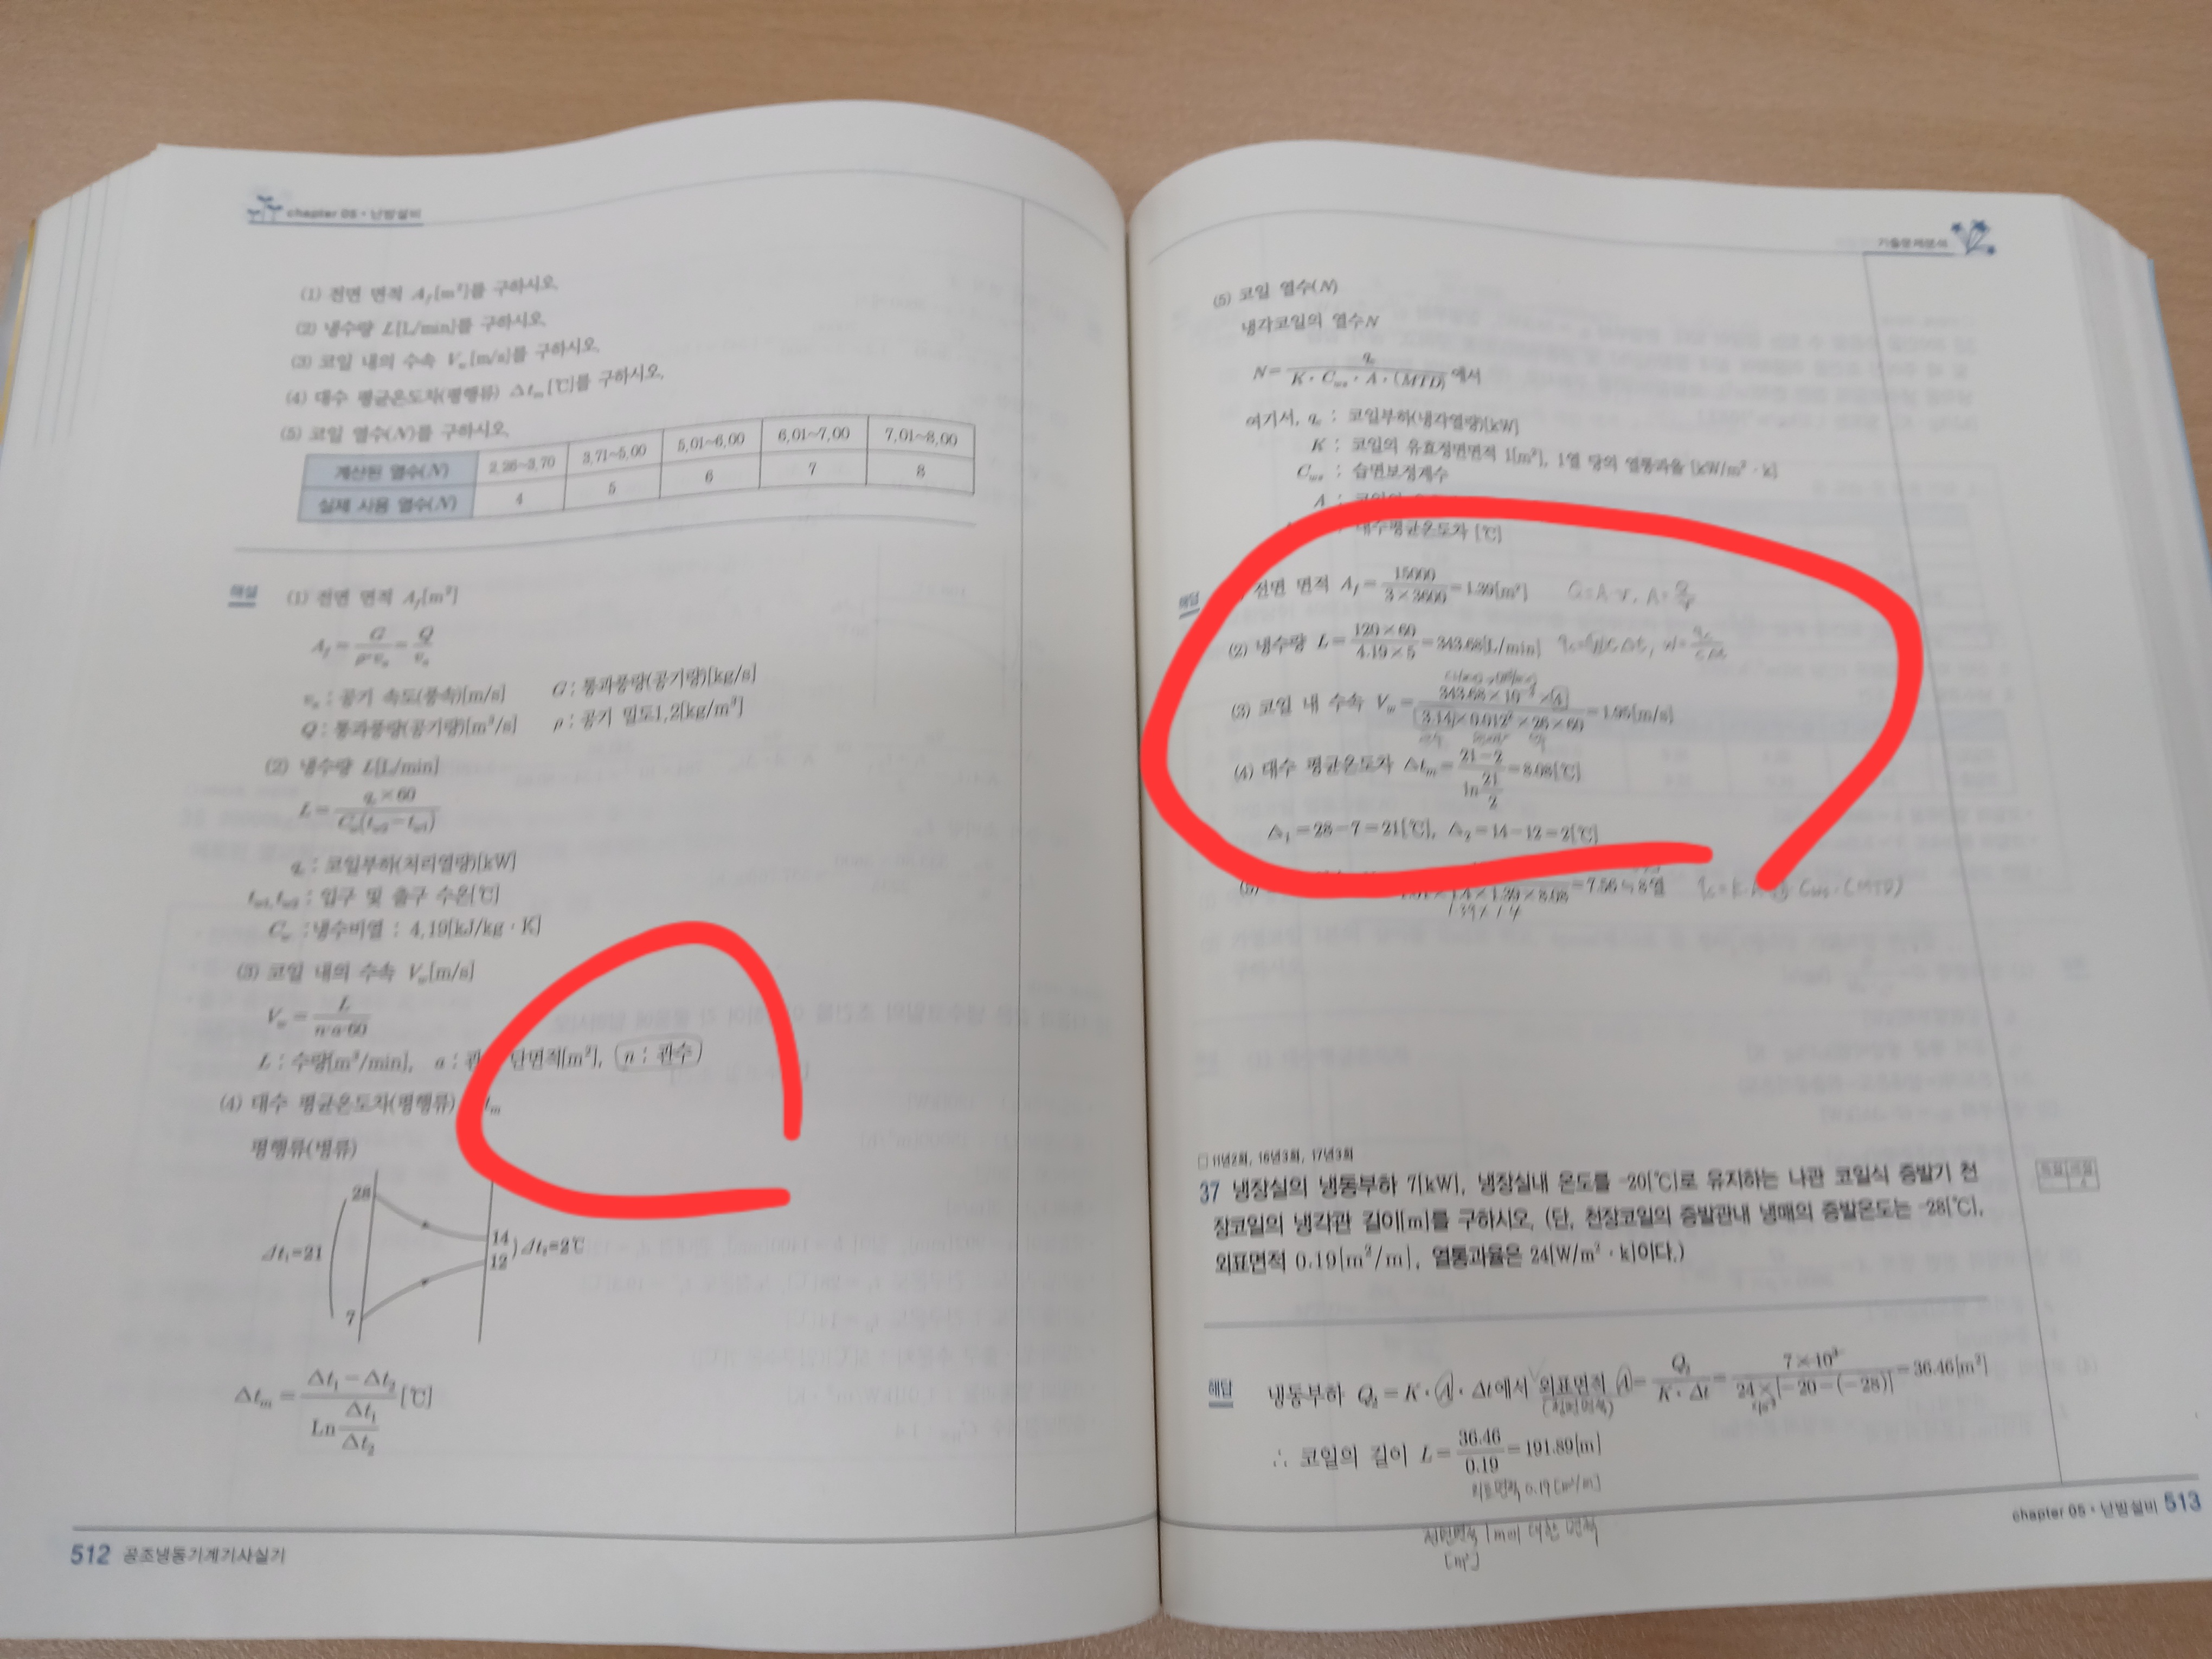 chapter 05 · 난방설비
(1) 전면 면적 A_f[m²]를 구하시오.
(2) 냉수량 L[L/min]를 구하시오.
(3) 코일 내의 수속 V_w[m/s]를 구하시오.
(4) 대수 평균온도차(평행류) Δt_m[℃]를 구하시오.
(5) 코일 열수(N)를 구하시오.
계산된 열수(N) 2.26~3.70 3.71~5.00 5.01~6.00 6.01~7.00 7.01~8.00
실제 사용 열수(N) 4 5 6 7 8
해설 (1) 전면 면적 A_f[m²]
A_f = G/(ρ·v_a) = Q/v_a
v_a : 공기 속도(풍속)[m/s] G : 통과풍량(공기량)[kg/s]
Q : 통과풍량(공기량)[m³/s] ρ : 공기 밀도1.2[kg/m³]
(2) 냉수량 L[L/min]
L = q_c×60/C_w(t_w2−t_w1)
q_c : 코일부하(처리열량)[kW]
t_w1, t_w2 : 입구 및 출구 수온[℃]
C_w : 냉수비열 : 4.19[kJ/kg · K]
(3) 코일 내의 수속 V_w[m/s]
V_w = L/(n·a·60)
L : 수량[m³/min], a : 관 단면적[m²], n : 관수
(4) 대수 평균온도차(평행류) t_m
평행류(병류)
28
Δt₁=21
14
12
Δt₂=2℃
7
Δt_m = (Δt₁−Δt₂)/(Ln Δt₁/Δt₂) [℃]
512 공조냉동기계기사실기
기출문제분석
(5) 코일 열수(N)
냉각코일의 열수N
N = q_c/(K · C_ws · A · (MTD)) 에서
여기서, q_c : 코일부하(냉각열량)[kW]
K : 코일의 유효정면면적 1[m²], 1열 당의 열통과율 [kW/m² · k]
C_ws : 습면보정계수
A :
대수평균온도차 [℃]
해답 전면 면적 A_f = 15000/(3×3600) = 1.39[m²] Q=A·V, A=Q/V
(2) 냉수량 L = 120×60/(4.19×5) = 343.68[L/min]
(3) 코일 내 수속 V_w = 343.68×10⁻³×4/(3.14×0.012²×26×60) = 1.95[m/s]
(4) 대수 평균온도차 Δt_m = (21−2)/(ln 21/2) = 8.08[℃]
Δ₁=28−7=21[℃], Δ₂=14−12=2[℃]
1.01×1.4×1.39×8.08 = 7.56 ≒ 8열
1.39×1.4
□ 11년2회, 16년3회, 17년3회
37 냉장실의 냉동부하 7[kW], 냉장실내 온도를 -20[℃]로 유지하는 나관 코일식 증발기 천
장코일의 냉각관 길이[m]를 구하시오. (단, 천장코일의 증발관내 냉매의 증발온도는 -28[℃],
외표면적 0.19[m²/m], 열통과율은 24[W/m² · k]이다.)
득점 배점
해답 냉동부하 Q_2=K · A · Δt에서 외표면적 A = Q_2/(K · Δt) = 7×10³/(24×{-20-(-28)}) = 36.46[m²]
∴ 코일의 길이 L = 36.46/0.19 = 191.89[m]
외표면적 0.19[m²/m]
1m에 대한 면적
[m²]
chapter 05 · 난방설비 513